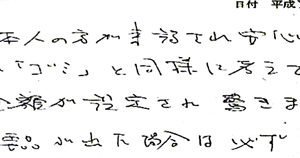 日付 平成
本人の方が来訪され安心
「ゴミ」と同様に考えて
額が設定され 驚きま
品が出た場合は必ず